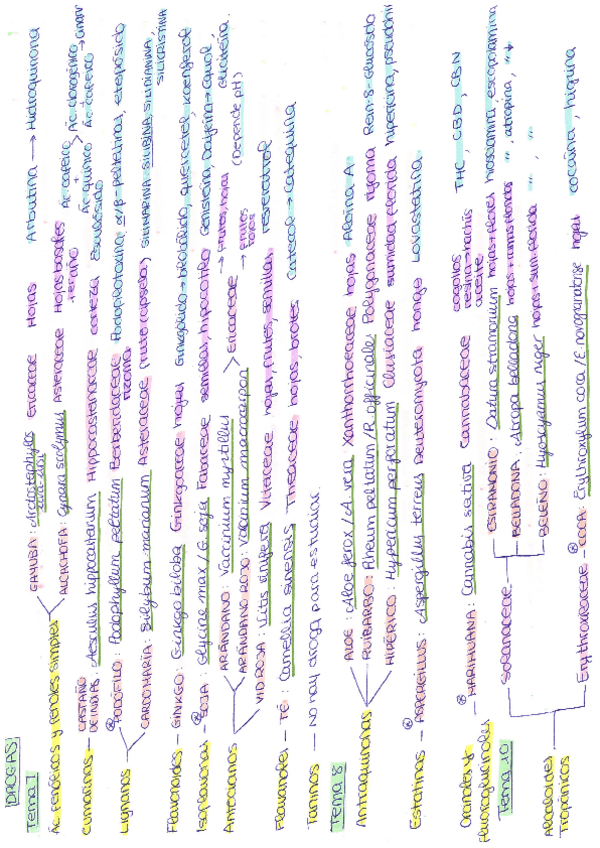 DROGAS
Tema 7
Ác. fenólicos y fenoles simples
GAYUBA: Arctostaphyllos uva-ursi Ericaceae Hojas Arbutina → Hidroquinona
ALCACHOFA: Cynara scolymus Asteraceae Hojas basales Ác. cafeico + Ác. quínico > Ác. clorogénico → cinarina
Ác. cafeico
Cumarinas — CASTAÑO DE INDIAS: Aesculus hippocastanum Hippocastanaceae corteza Esculósido
Lignanos
PODÓFILO: Podophyllum peltatum Berberidaceae rizoma Podofilotoxina, α/β-peltatinas, etopósido
CARDO MARÍA: Silybum marianum Asteraceae fruto SILIMARINA: SILIBINA, SILIDIANINA, SILICRISTINA
Flavonoides — GINKGO: Ginkgo biloba Ginkgoaceae hojas Ginkgólido → bilobálido, quercetol, kaenferol
Isoflavonas — SOJA: Glycine max / G. soja Fabaceae semillas, hipocotilo Genisteína, Daizeína → Equol, Gliciteína
Antocianos
ARÁNDANO: Vaccinium myrtillus > Ericaceae → frutos, hojas (Depende pH)
ARÁNDANO ROJO: Vaccinium macrocarpon → frutos
VID ROJA: Vitis vinifera Vitaceae hojas, frutos, semillas resveratrol
Flavanoles — TÉ: Camellia sinensis Theaceae hojas, brotes Catecol → Catequina
Taninos — no hay droga para estudiar
Tema 8
Antraquinonas
ALOE: Aloe ferox / A. vera Xanthorrhoeaceae hojas Aloína A
RUIBARBO: Rheum palmatum / R. officinalis Polygonaceae rizoma Reín-8-glucósido
HIPÉRICO: Hypericum perforatum Clusiaceae sumidad florida hipericina, pseudohip
Estatinas — ASPERGILLUS: Aspergillus terreus Deuteromycota hongo Lovastatina
Orcinoles y fluoroglucinoles — MARIHUANA: Cannabis sativa Cannabaceae cogollos resina → hachís aceite THC, CBD, CBN
Tema 10
Alcaloides Tropánicos
Solanaceae
ESTRAMONIO: Datura stramonium hojas + flores hiosciamina, escopolamina
BELLADONA: Atropa belladona hojas + sumidades " , atropina, "
BELEÑO: Hyoscyamus niger hojas + sum. florida " "
Erythroxilaceae — COCA: Erythroxylum coca / E. novogranatense hojas cocaína, higrina